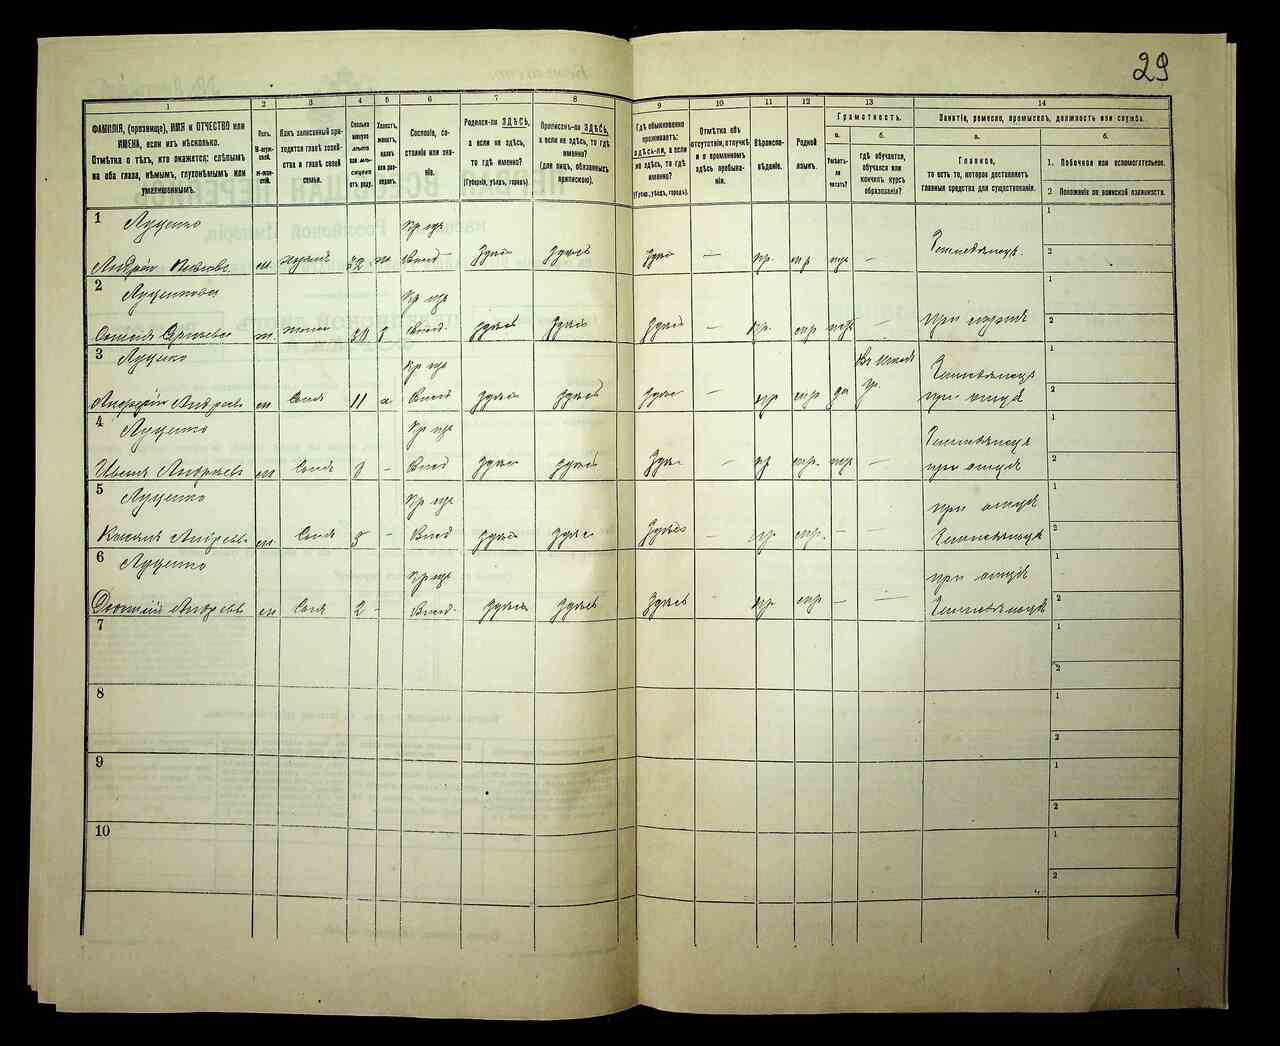 29
1 2 3 4 5 6 7 8 9 10 11 12 13 14
ФАМИЛІЯ, (прозвище), ИМЯ и ОТЧЕСТВО или
ИМЕНА, если ихъ нѣсколько.
Отмѣтка о тѣхъ, кто окажется: слѣпымъ
на оба глаза, нѣмымъ, глухонѣмымъ или
умалишеннымъ.
Полъ.
М-муж-
ской.
Ж-жен-
скій.
Какъ записанный при-
ходится главѣ хозяй-
ства и главѣ своей
семьи.
Сколько
минуло
лѣтъ
или мѣ-
сяцевъ
отъ роду.
Холостъ,
женатъ,
вдовъ
или раз-
веденъ.
Сословіе, со-
стояніе или зва-
ніе.
Родился-ли ЗДѢСЬ,
а если не здѣсь,
то гдѣ именно?
(Губернія, уѣздъ, городъ).
Приписанъ-ли ЗДѢСЬ,
а если не здѣсь, то гдѣ
именно?
(для лицъ, обязанныхъ
припискою).
Гдѣ обыкновенно
проживаетъ:
здѣсь-ли, а если
не здѣсь, то гдѣ
именно?
(Губер., уѣздъ, городъ).
Отмѣтка объ
отсутствіи, отлучкѣ
и о временномъ
здѣсь пребыва-
ніи.
Вѣроиспо-
вѣданіе.
Родной
языкъ.
Грамотность.
а.
Умѣетъ-
ли
читать?
б.
гдѣ обучается,
обучался или
кончилъ курсъ
образованія?
Занятіе, ремесло, промыселъ, должность или служба.
а.
Главное,
то есть то, которое доставляетъ
главныя средства для существованія.
б.
1. Побочное или вспомогательное.
2 Положеніе по воинской повинности.
1 Луценко Кр изъ 1
Андрій м хозяинъ 52 ж Влад Здѣсь Здѣсь Здѣсь — пр. мр нѣт — Земледѣлецъ 2
2 Луценкова Кр изъ 1
ж. жена Влад. Здѣсь Здѣсь Здѣсь — пр. мр нѣт — при мужѣ 2
3 Луценко Кр изъ 1
Андреевъ м Сынъ 11 х Влад Здѣсь Здѣсь Здѣсь — пр мр да Земледѣлецъ при отцѣ 2
4 Луценко Кр изъ 1
Иванъ Андреевъ м Сынъ — Влад Здѣсь Здѣсь Здѣсь — пр мр. нѣт — Земледѣлецъ при отцѣ 2
5 Луценко Кр изъ при отцѣ 1
Андреевъ м Сынъ — Влад Здѣсь Здѣсь Здѣсь — пр мр. — — Земледѣльцѣ 2
6 Луценко Кр изъ при отцѣ 1
Андреевъ м Сынъ 2 - Влад. Здѣсь Здѣсь Здѣсь — пр мр — — Земледѣльцѣ 2
7 1
2
8 1
2
9 1
2
10 1
2